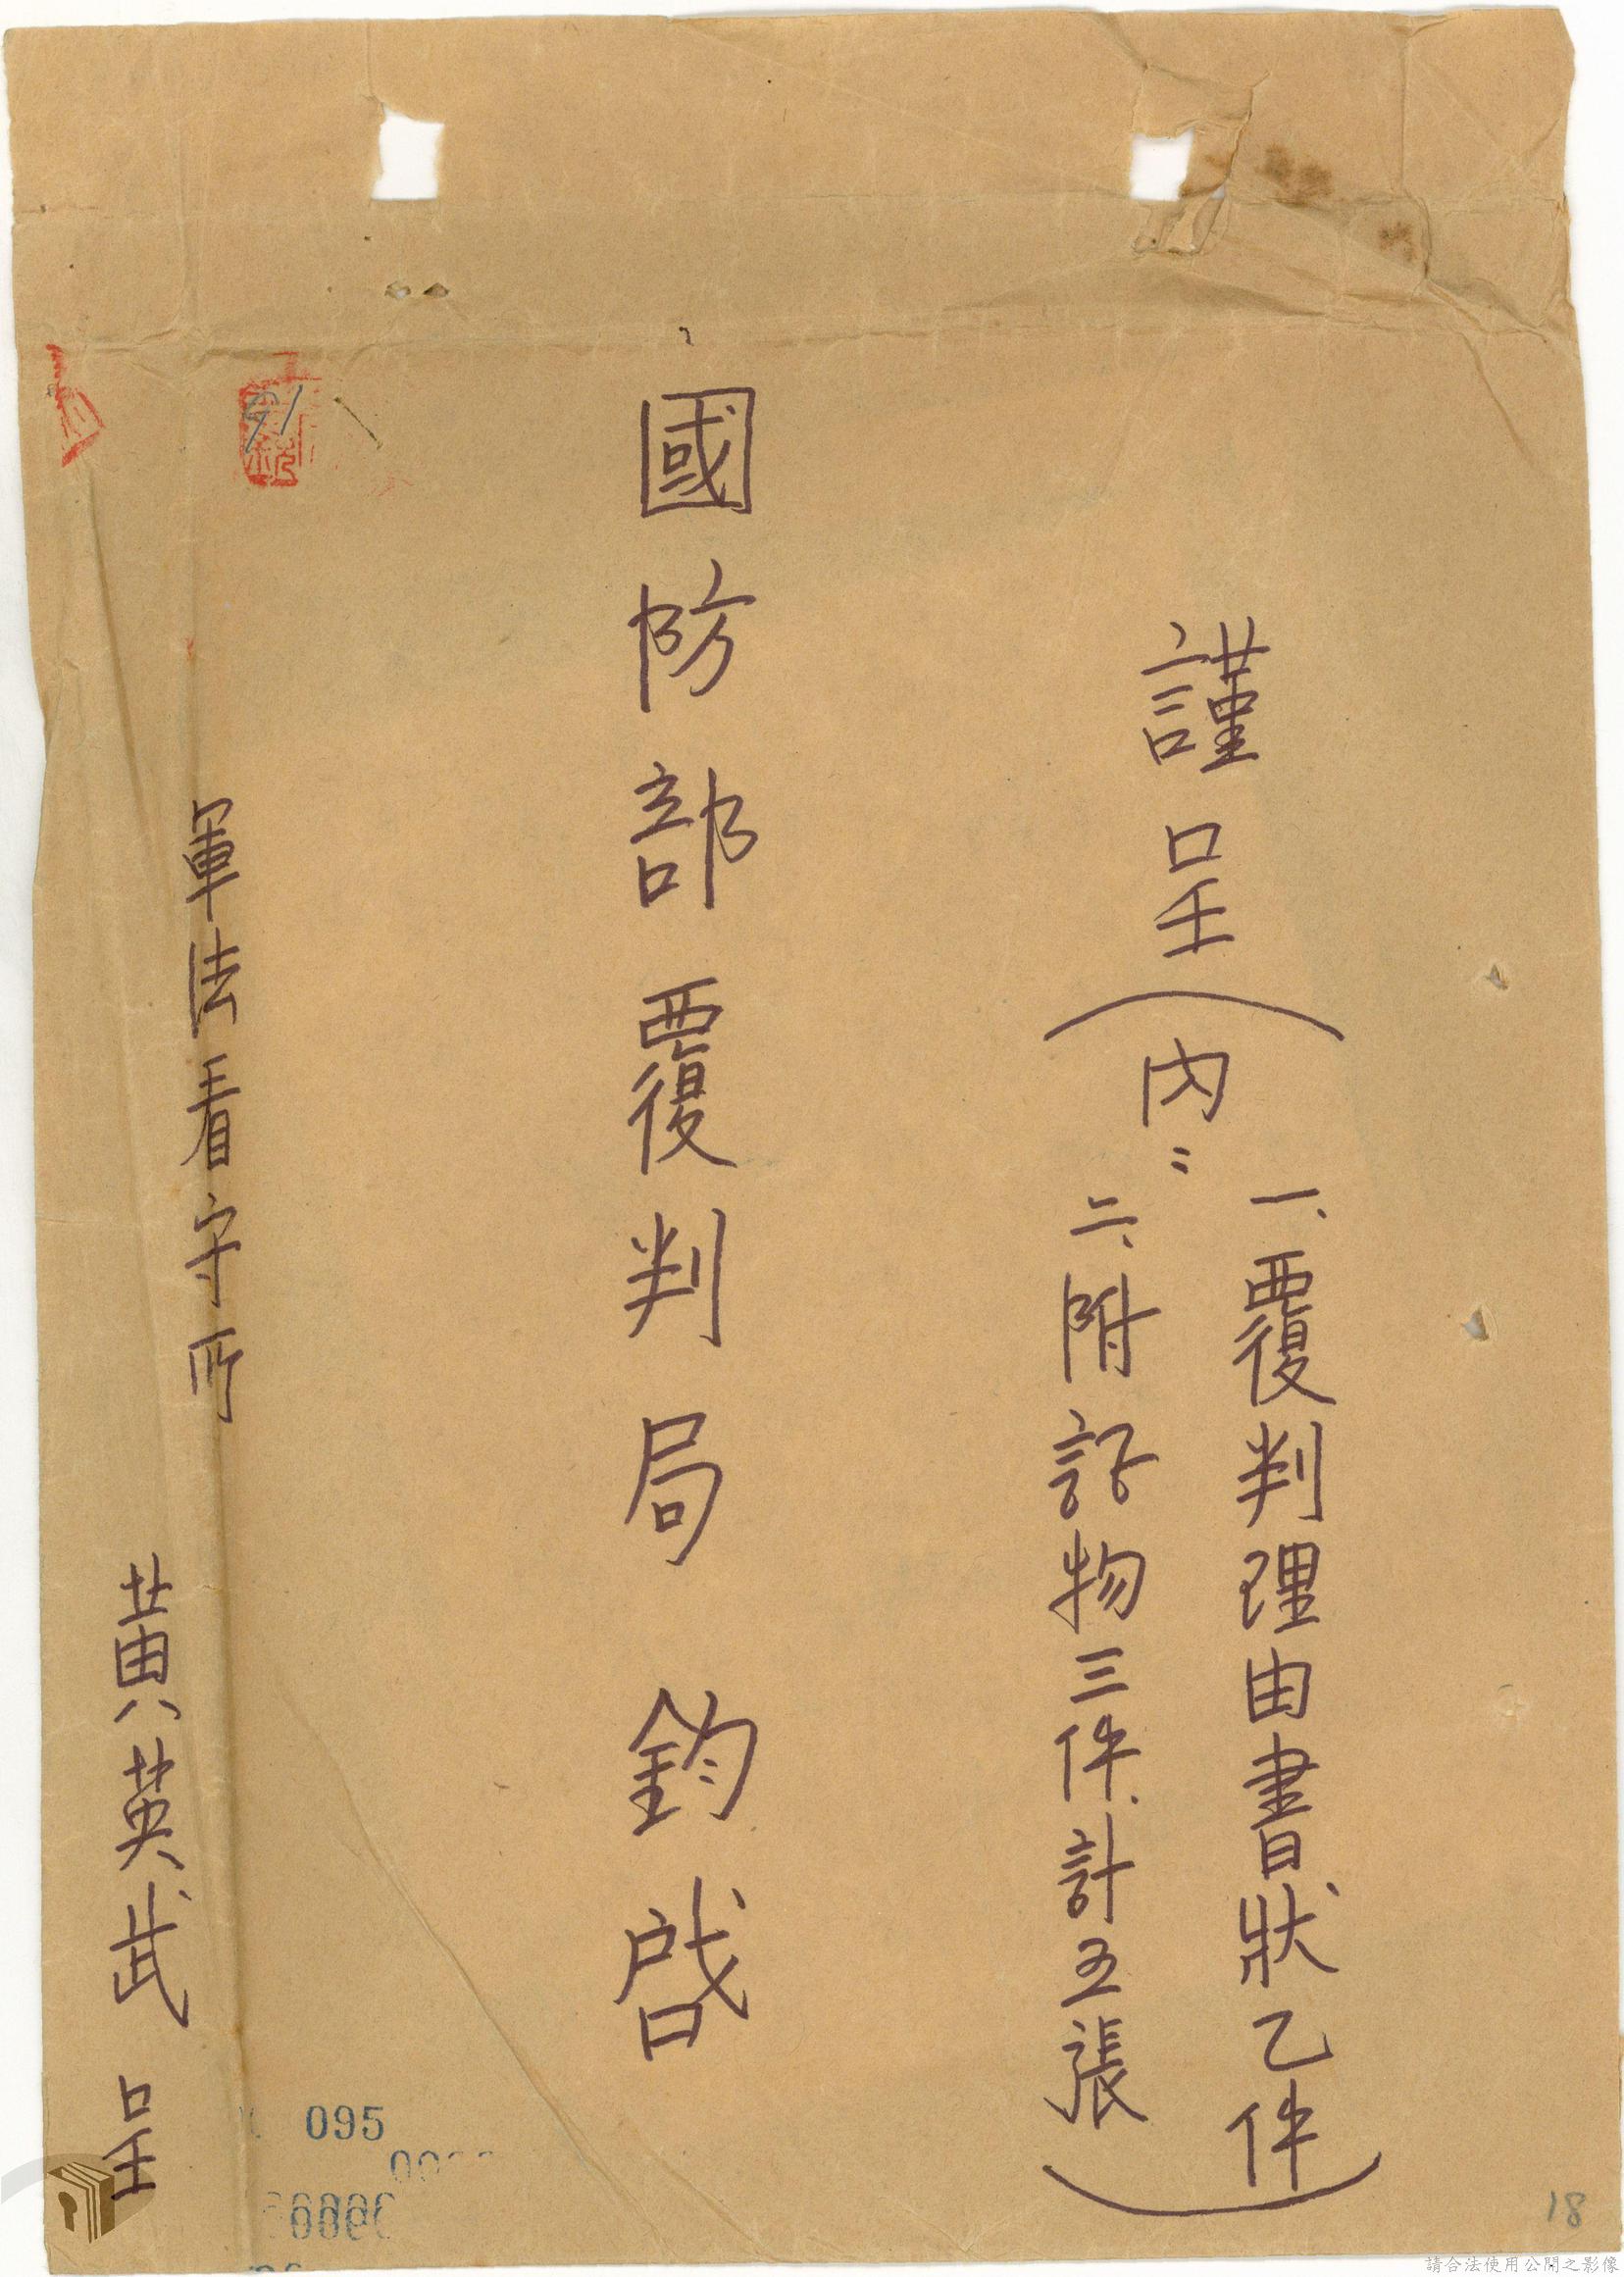 謹呈(內:
一、覆判理由書狀乙件
二、附証物三件、計五張)
國防部覆判局 鈞啓
軍法看守所
黃英武 呈
91
095
18
請合法使用公開之影像